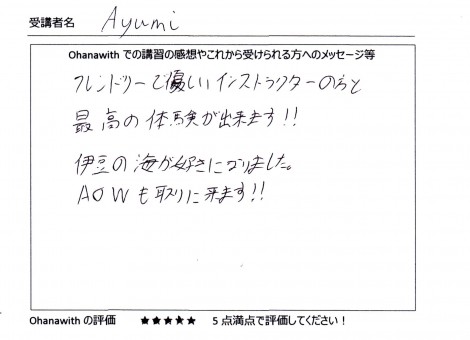 受講者名 Ayumi
Ohanawith での講習の感想やこれから受けられる方へのメッセージ等
フレンドリーで優しいインストラクターの方と
最高の体験が出来ます！！
伊豆の海が好きになりました。
AOWも取りに来ます！！
Ohanawith の評価 ★★★★★ 5点満点で評価してください！